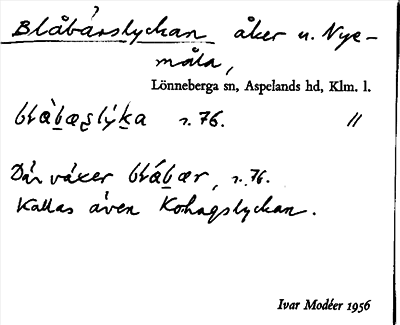 Blåbärslyckan åker u. Nye-
måla,
Lönneberga sn, Aspelands hd, Klm. l.
s. 76. //
Där växer, s. 76.
Kallas även Kohagslyckan.
Ivar Modéer 1956